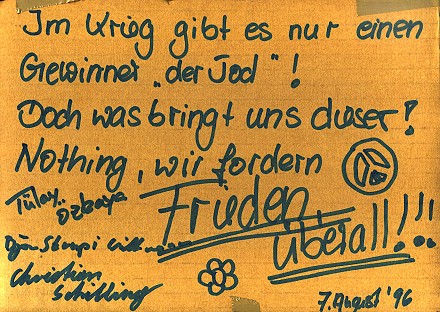 Im Krieg gibt es nur einen
Gewinner „der Tod"!
Doch was bringt uns dieser?
Nothing, wir fordern
Frieden,
überall!!!
Tülay Özkaya
Christian
Schilling
7. August '96